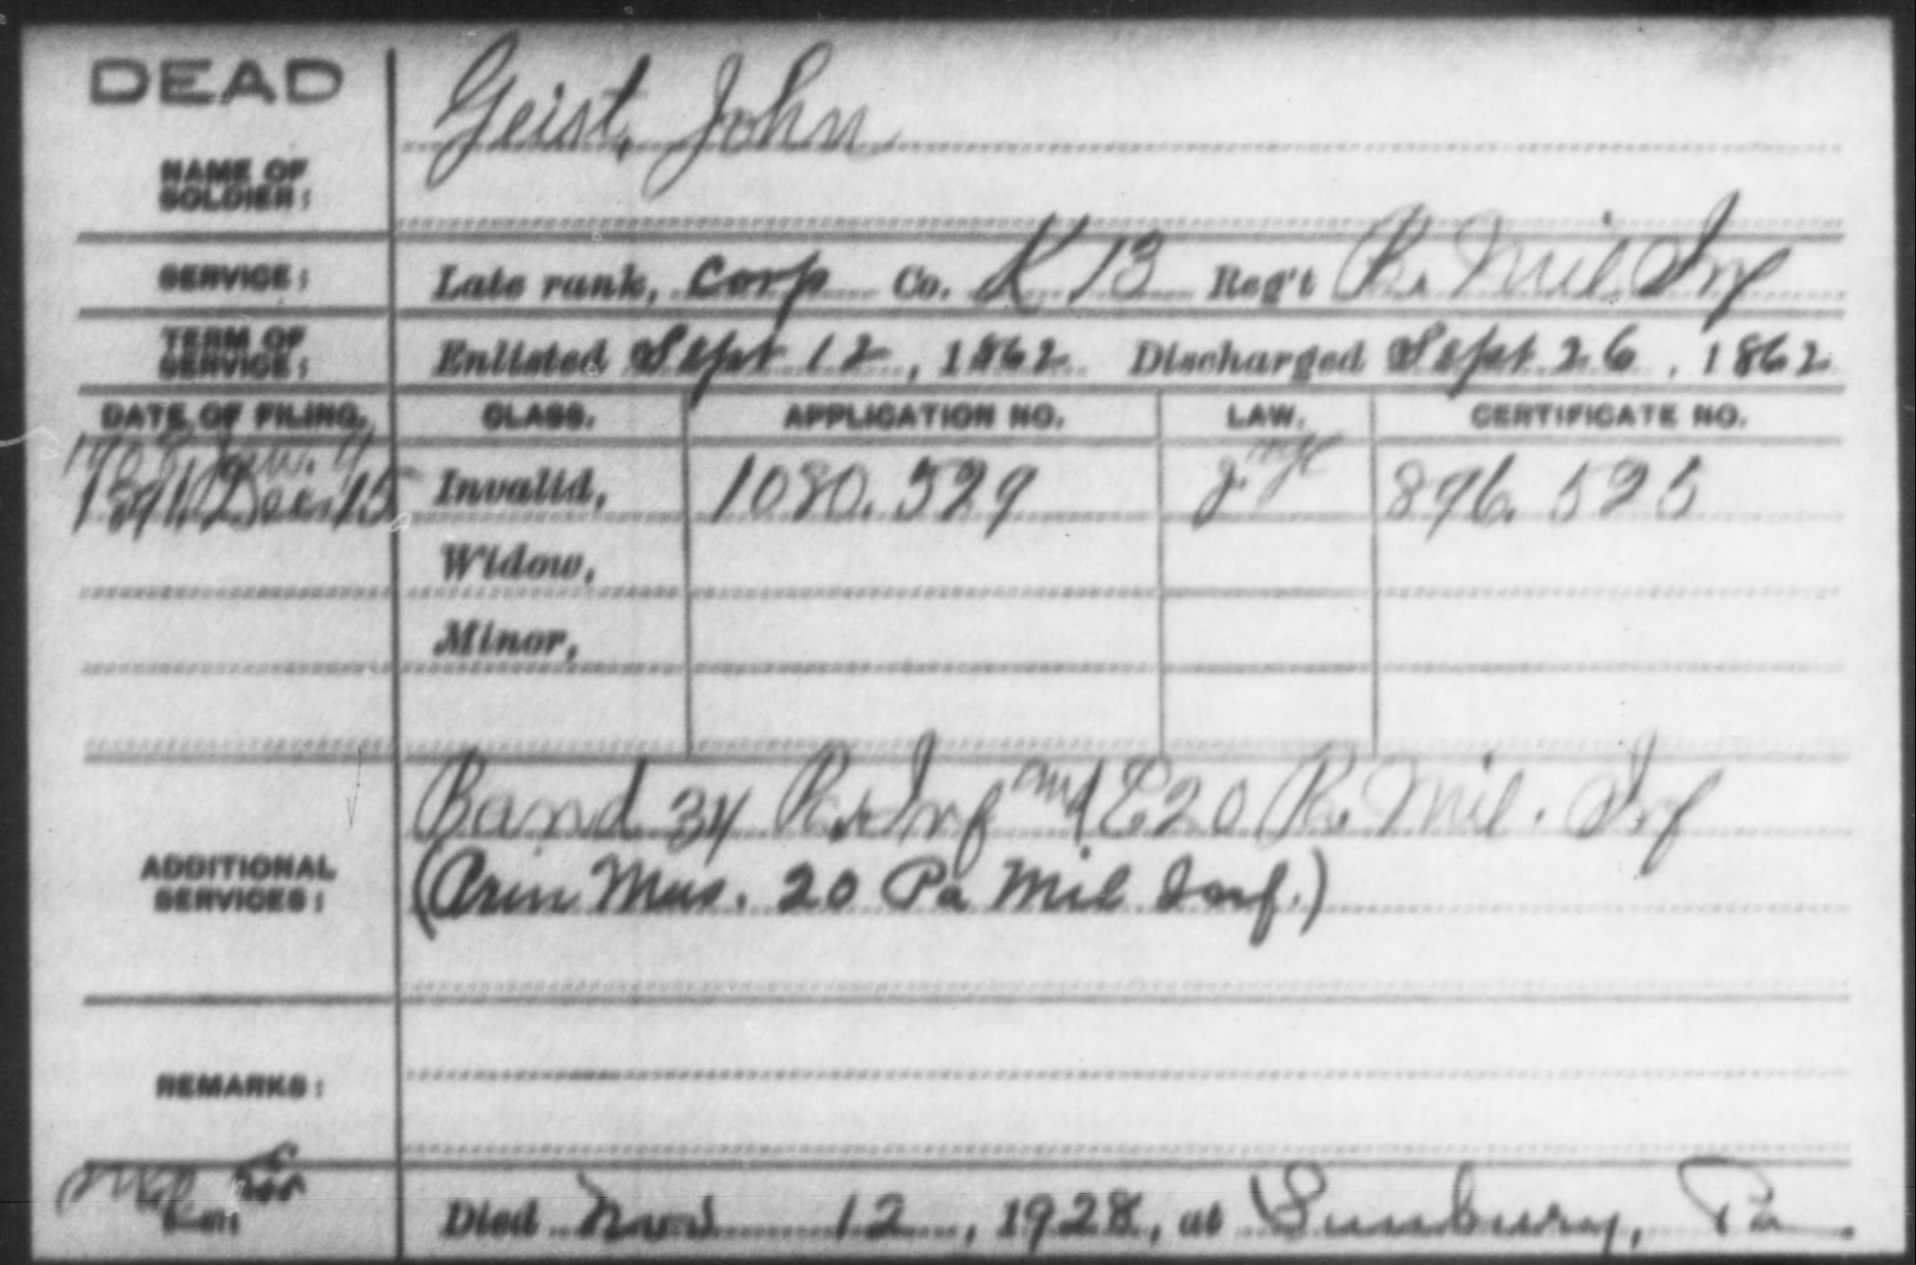 DEAD
Geist, John
NAME OF
SOLDIER:
SERVICE: Late rank, Corp Co. K 13 Reg't Pa. Mil Inf
TERM OF
SERVICE: Enlisted Sept 12, 1862 Discharged Sept 26, 1862
DATE OF FILING. CLASS. APPLICATION NO. LAW. CERTIFICATE NO.
Jan. 9
1891 Dec 15 Invalid, 1080.529 896.525
Widow,
Minor,
Band 34 Pa Inf and E 20 Pa Mil. Inf
ADDITIONAL
SERVICES: (Prin Mus. 20 Pa Mil Inf.)
REMARKS:
Died Nov 12, 1928, at Sunbury, Pa